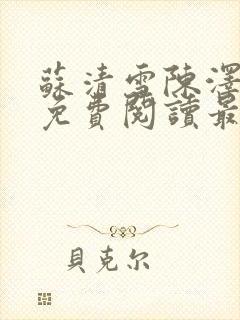 蘇清雪陳澤
免費閱讀最
貝克尔